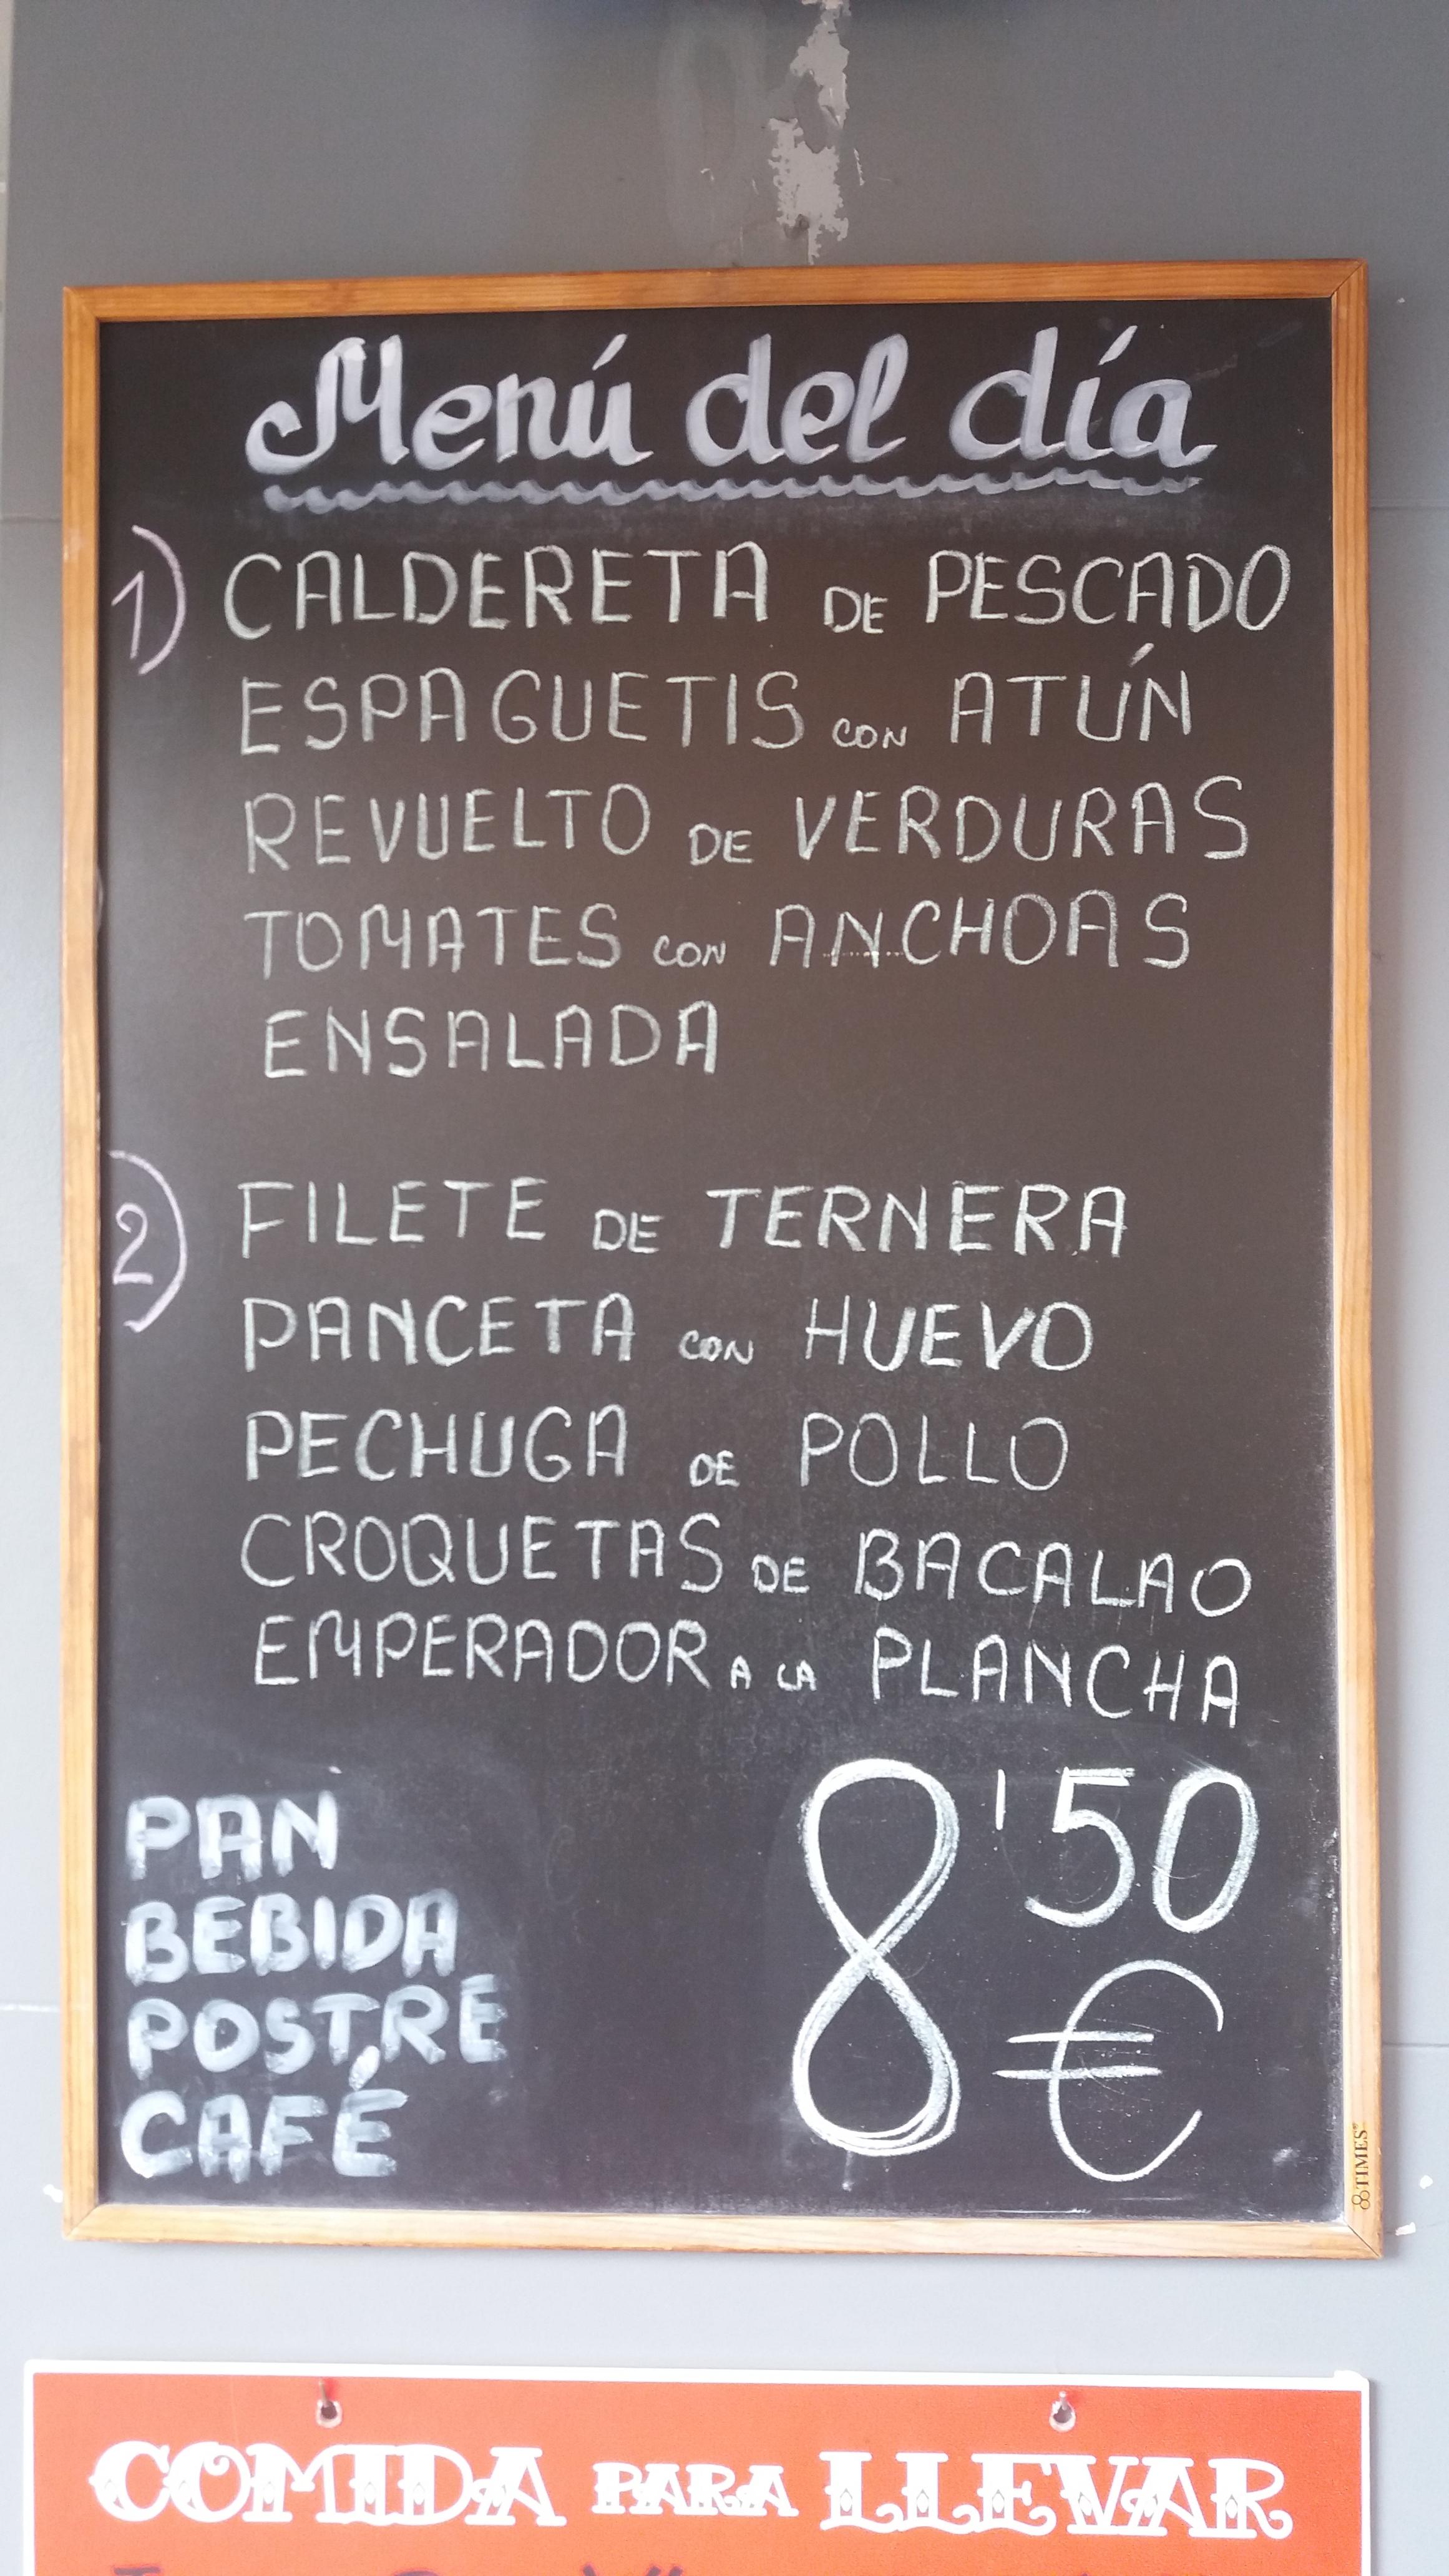 Menú del día
1) CALDERETA DE PESCADO
ESPAGUETIS CON ATÚN
REVUELTO DE VERDURAS
TOMATES CON ANCHOAS
ENSALADA
2) FILETE DE TERNERA
PANCETA CON HUEVO
PECHUGA DE POLLO
CROQUETAS DE BACALAO
EMPERADOR A LA PLANCHA
PAN
BEBIDA
POSTRE
CAFÉ
8'50
€
TIMES
COMIDA PARA LLEVAR